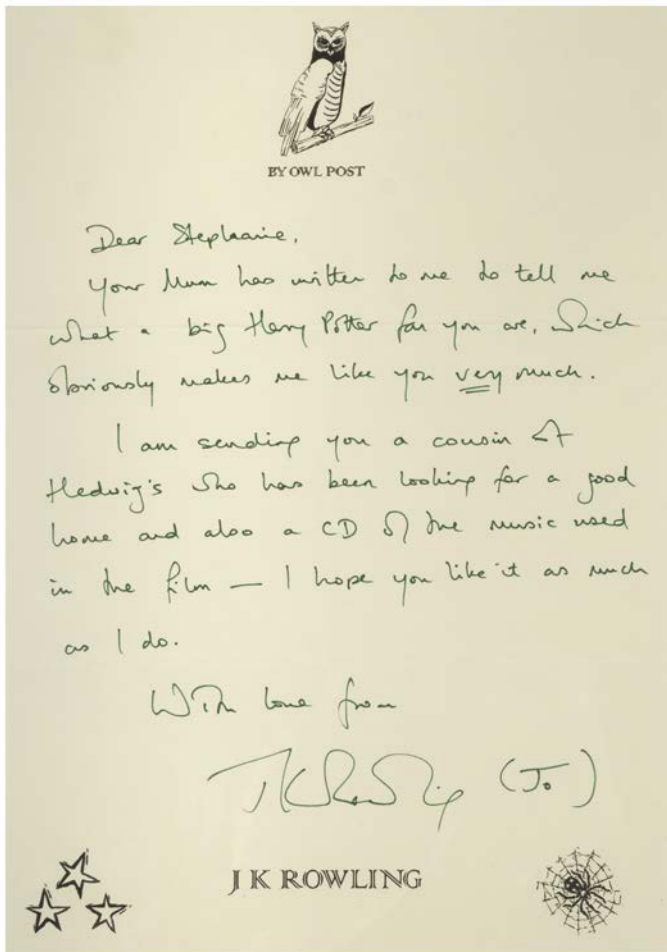 BY OWL POST
Dear Stephanie,
Your Mum has written to me to tell me
what a big Harry Potter fan you are, which
obviously makes me like you very much.
I am sending you a cousin of
Hedwig's who has been looking for a good
home and also a CD of the music used
in the film — I hope you like it as much
as I do.
With love from
JK Rowling (Jo)
J K ROWLING